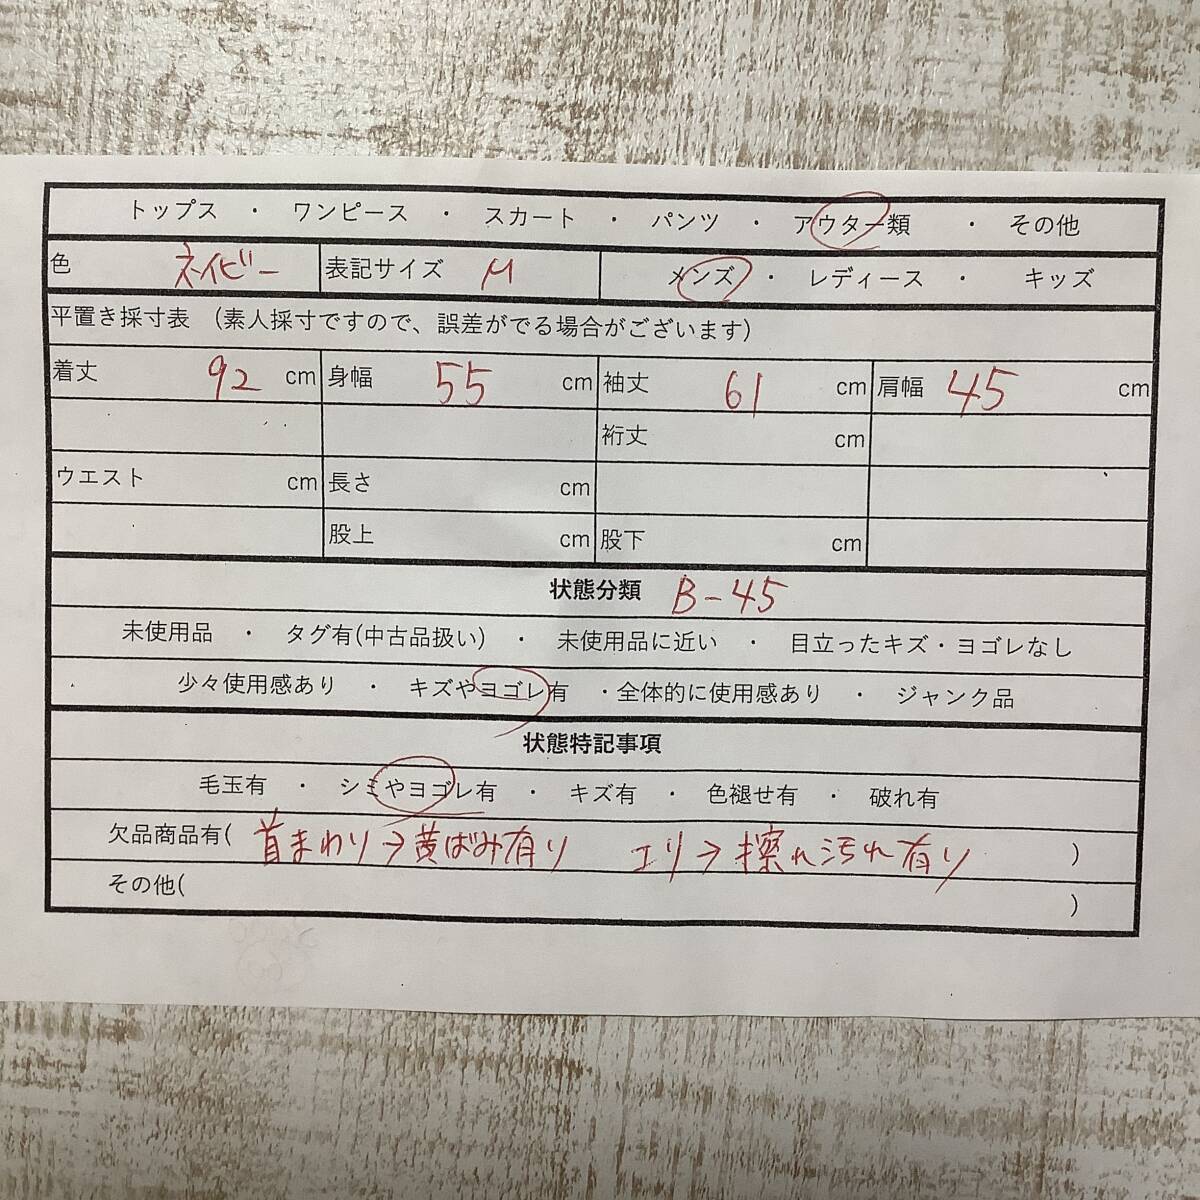 トップス ・ ワンピース ・ スカート ・ パンツ ・ アウター類 ・ その他
色 ネイビー 表記サイズ M メンズ ・ レディース ・ キッズ
平置き採寸表 （素人採寸ですので、誤差がでる場合がございます）
着丈 92 cm 身幅 55 cm 袖丈 61 cm 肩幅 45 cm
裄丈 cm
ウエスト cm 長さ cm
股上 cm 股下 cm
状態分類 B-45
未使用品 ・ タグ有(中古品扱い) ・ 未使用品に近い ・ 目立ったキズ・ヨゴレなし
少々使用感あり ・ キズやヨゴレ有 ・全体的に使用感あり ・ ジャンク品
状態特記事項
毛玉有 ・ シミやヨゴレ有 ・ キズ有 ・ 色褪せ有 ・ 破れ有
欠品商品有( 首まわり→黄ばみ有り エリ→擦れ汚れ有り )
その他( )